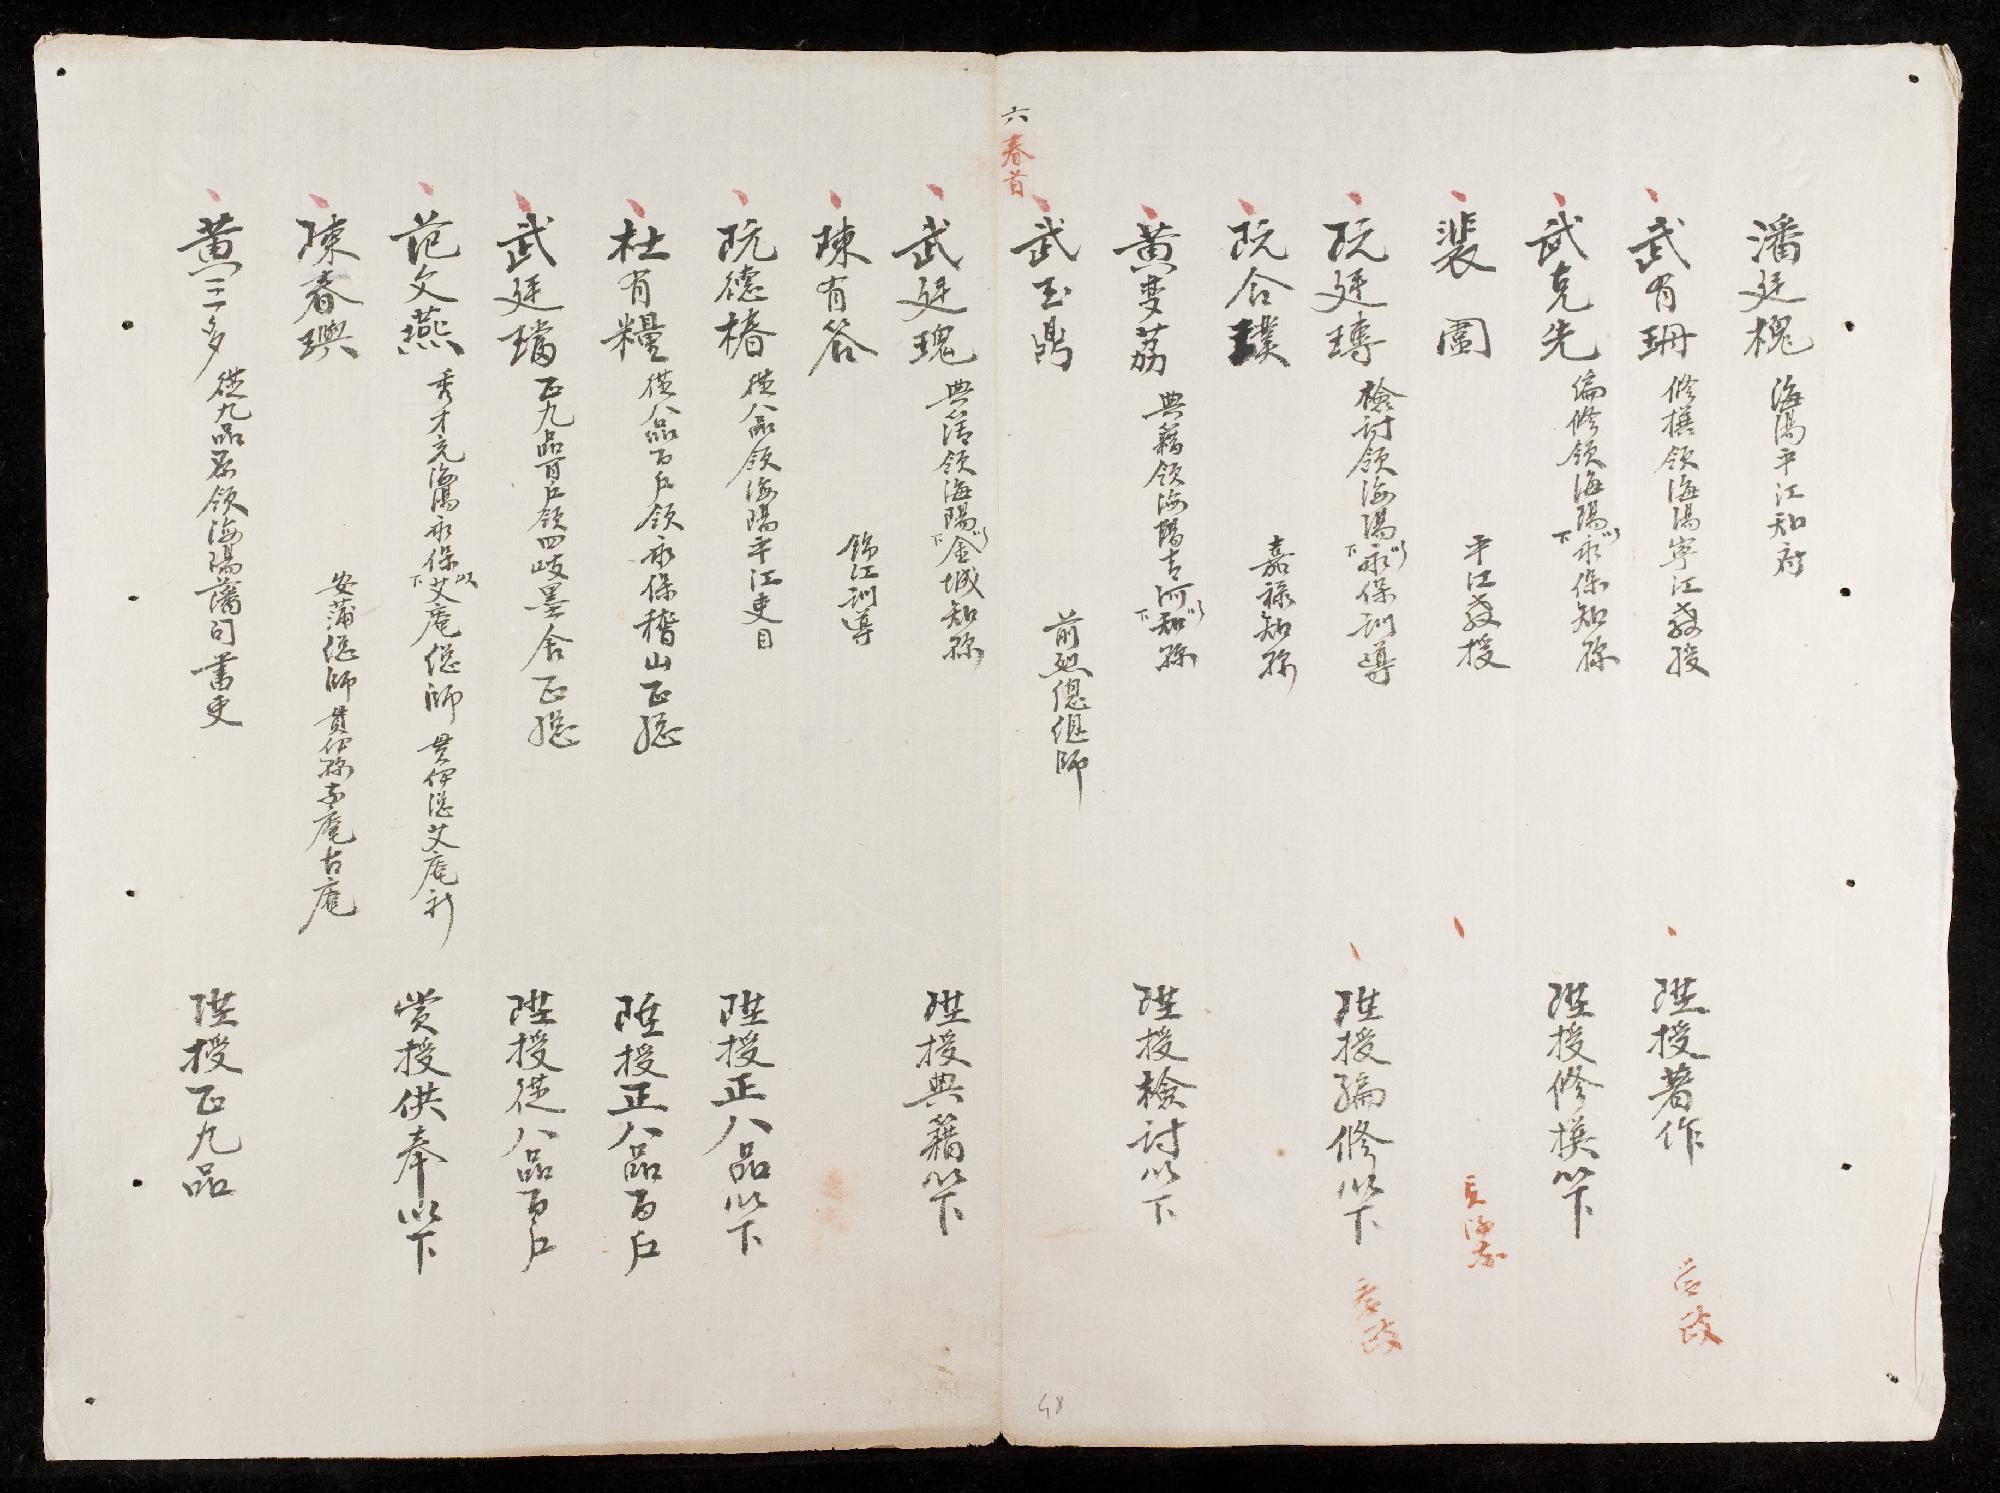 潘廷槐 海陽平江知府
武有珊 修撰領海陽寧江教授 陞授著作 后改
武克先 編修領海陽永保知縣 以下 陞授修撰以下
裴圍 平江教授
阮廷瑼 檢討領海陽永保訓導 以下 陞授編修以下 彥改
阮合璞 嘉祿知縣
黃雙荔 典籍領海陽青河知縣 以下 陞授檢討以下
武玉鼎 前翅總偲師
六春首
武廷瑰 典簿領海陽金城知縣 以下 陞授典籍以下
陳有答 錦江訓導
阮德椿 從八品領海陽平江吏目 陞授正八品以下
杜有糧 從八品百戶領永保稽山正總 陞授正八品百戶
武廷璫 正九品百戶領四岐墨舍正總 陞授從八品百戶
范文燕 秀才充海陽永保艾庵偲師 以下 貫伊總艾庵社 賞授供奉以下
陳春璵 安蒲偲師 貫伊縣 庵古庵
黃三多 從九品 領海陽藩司書吏 陞授正九品
48